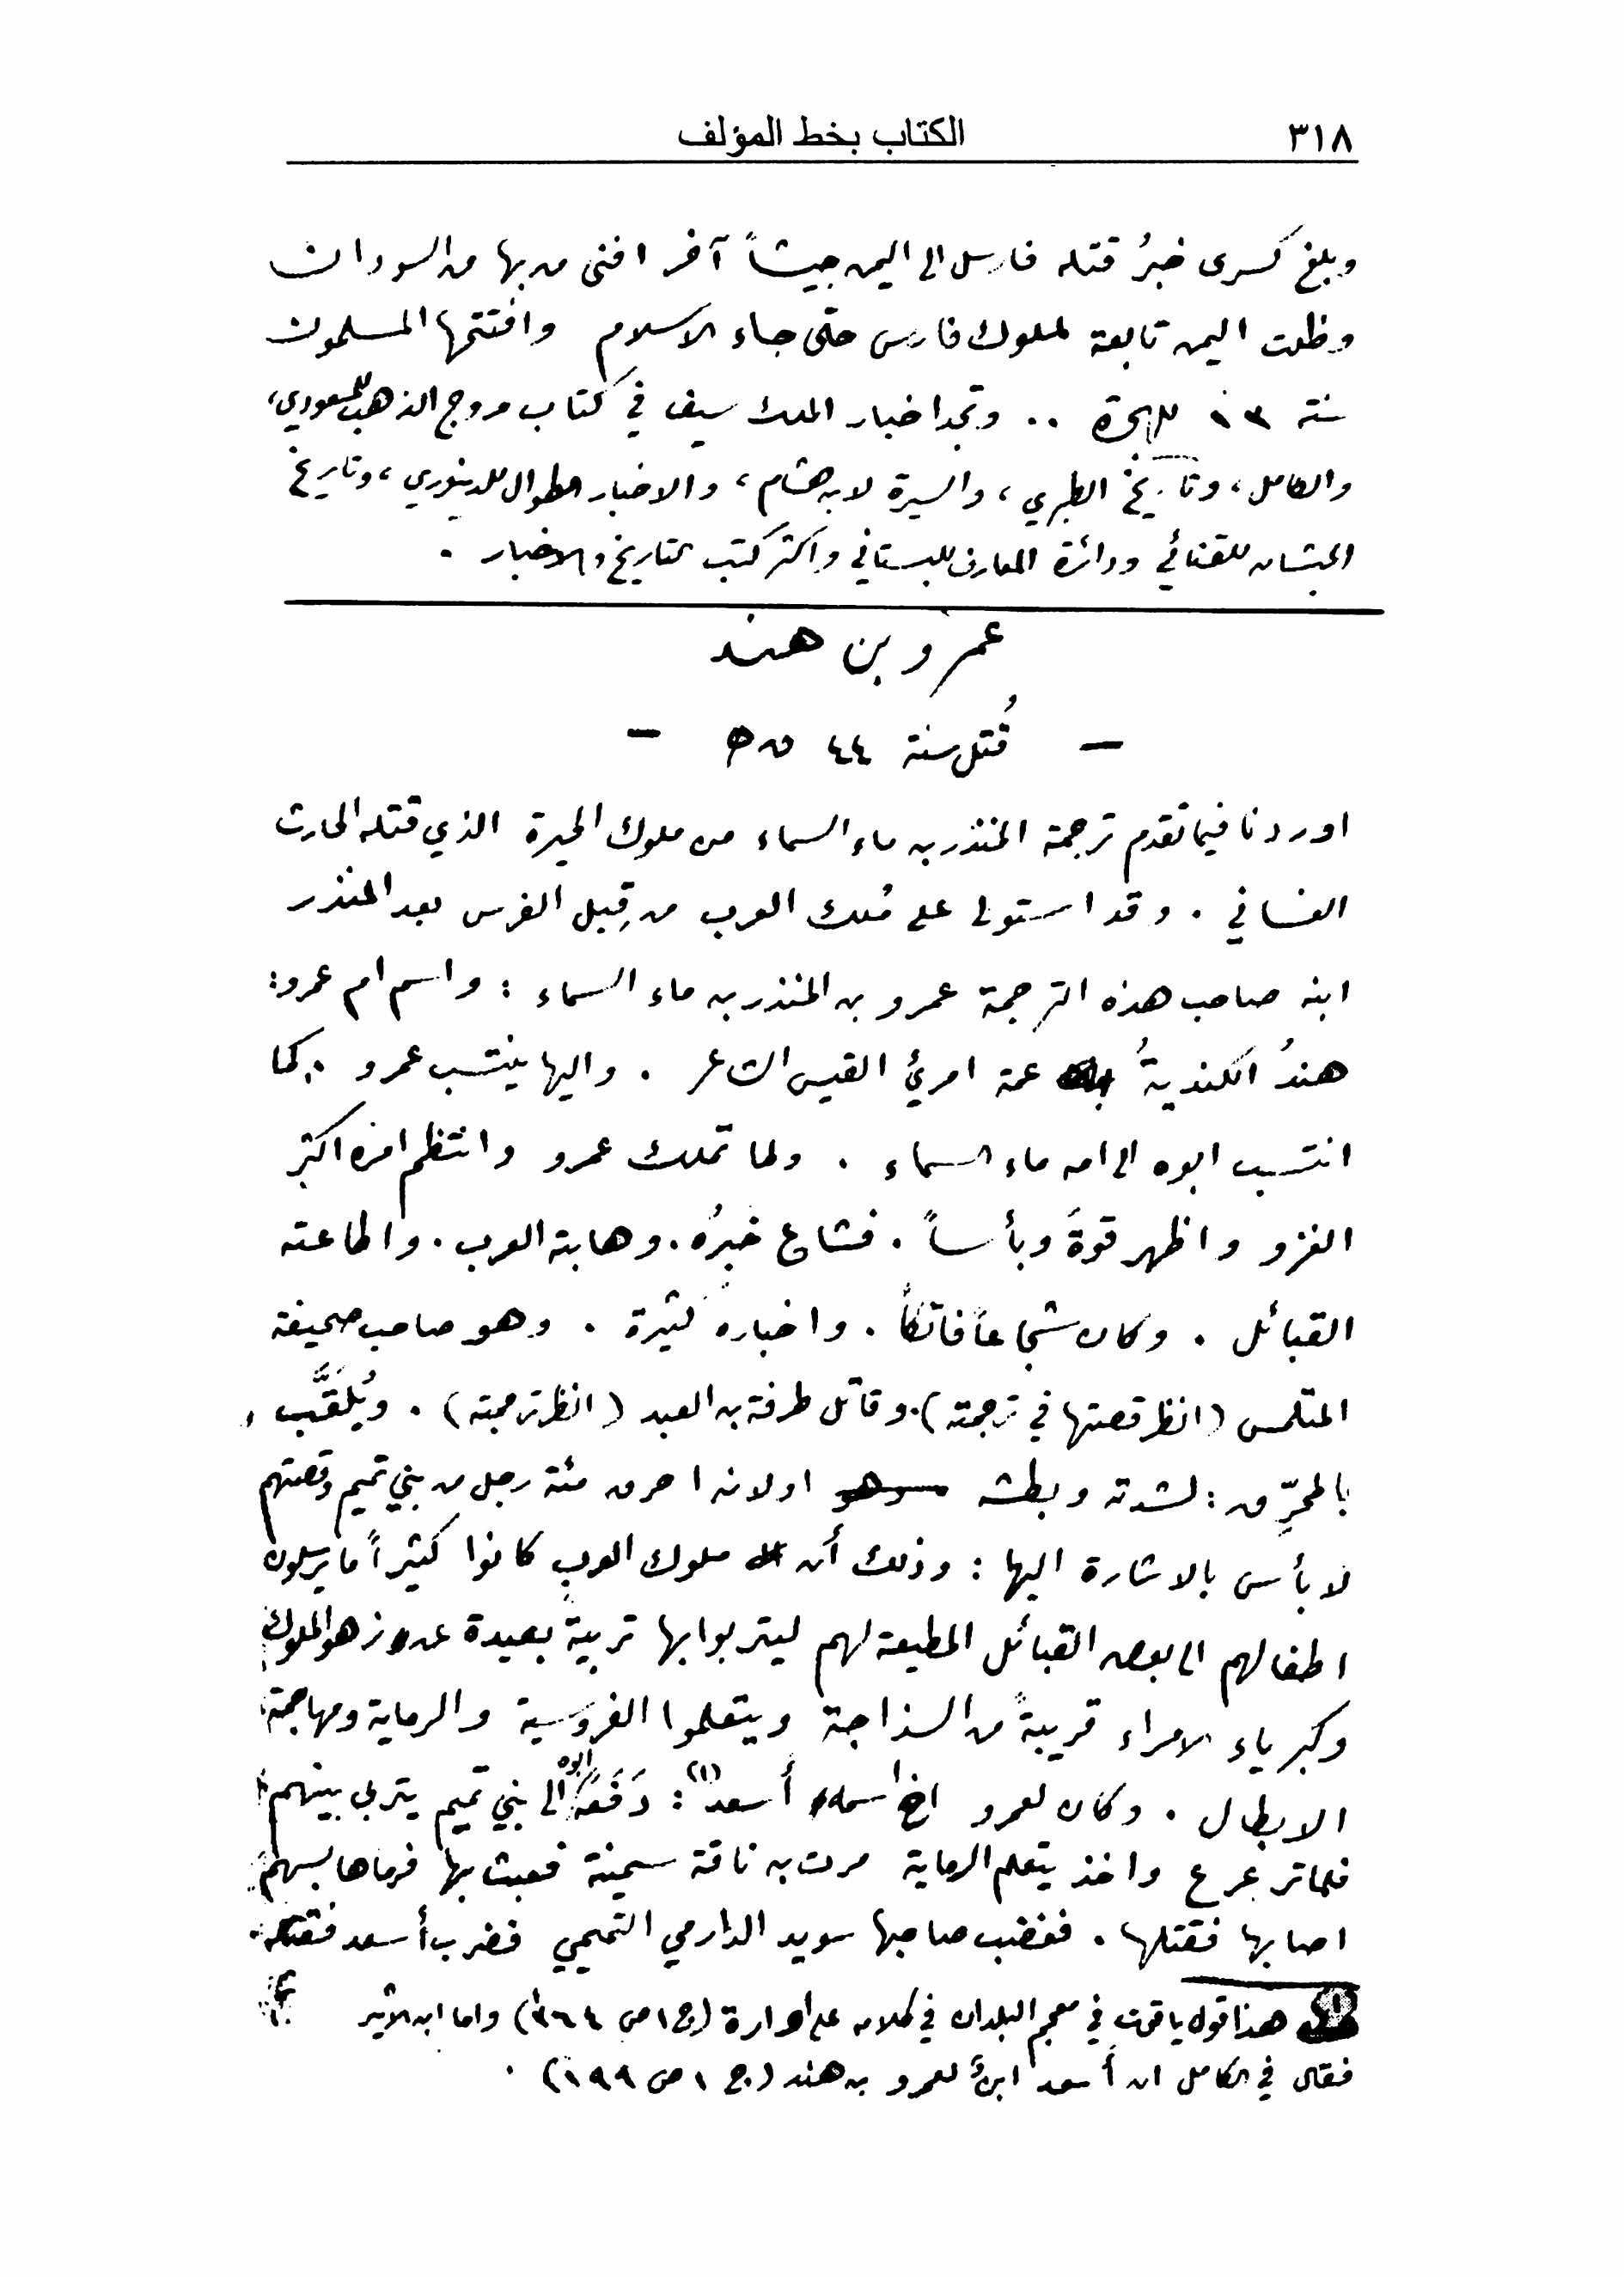 ٣١٨ الكتاب بخط المؤلف
وبلغ كسرى خبرُ قتله فارسل الى اليمن جيشاً آخر افنى من بها من السودان
وظلت اليمن تابعة لملوك فارس حتى جاء الاسلام وافتتحها المسلمون
سنة ١٣ للهجرة .. وتجد اخبار الملك سيف في كتاب مروج الذهب للمسعودي،
والكامل، وتاريخ الطبري، والسيرة لابن هشام، والاخبار الطوال للدينوري، وتاريخ
الحبشان للقنائي ودائرة المعارف للبستاني واكثر كتب التاريخ والاخبار .
عمرو بن هند
– قُتل سنة ٤٤ ق ه –
اوردنا فيما تقدم ترجمة المنذر بن ماء السماء من ملوك الحيرة الذي قتله الحارث
الغساني . وقد استولى على مُلك العرب من قِبل الفرس بعد المنذر
ابنه صاحب هذه الترجمة عمرو بن المنذر بن ماء السماء : واسم ام عمرو:
هندُ الكنديةُ عمة امرئ القيس الشاعر . واليها ينتسب عمرو . كما
انتسب ابوه الى امه ماء السماء . ولما تملك عمرو وانتظم امره اكثر
الغزو واظهر قوةً وبأساً . فشاع خبرُه . وهابته العرب . واطاعته
القبائل . وكان شجاعاً فاتكاً . واخباره كثيرة . وهو صاحب صحيفة
المتلمس (انظر قصتها في ترجمته). وقاتل طرفة بن العبد (انظر ترجمته) . ويُلقَّب
بالمحرِّق : لشدته وبطشه اولانه احرق مئة رجل من بني تميم وقصتهم
لا بأس بالاشارة اليها : وذلك أن ملوك العرب كانوا كثيراً ما يرسلون
اطفالهم الى بعض القبائل المطيعة لهم ليتربوا بها تربيةً بعيدة عن زهو الملوك
وكبرياء الامراء قريبةً من السذاجة ويتعلموا الفروسية والرماية ومهاجمة
الابطال . وكان لعمرو اخ اسمه أسعد (١) : دَفَعَهُ ابوه الى بني تميم يتربى بينهم
فلما ترعرع واخذ يتعلم الرماية مرت به ناقة سمينة فعبث بها فرماها بسهم
اصابها فقتلها . فغضب صاحبها سويد الدارمي التميمي فضرب أسعد فقتله.
(١) هذا قول ياقوت في معجم البلدان في كلامه على اوارة (ج ١ ص ٣٦٤) واما ابن الاثير
فقال في الكامل ان أسعد ابنٌ لعمرو بن هند (ج ١ ص ١٩٩) .